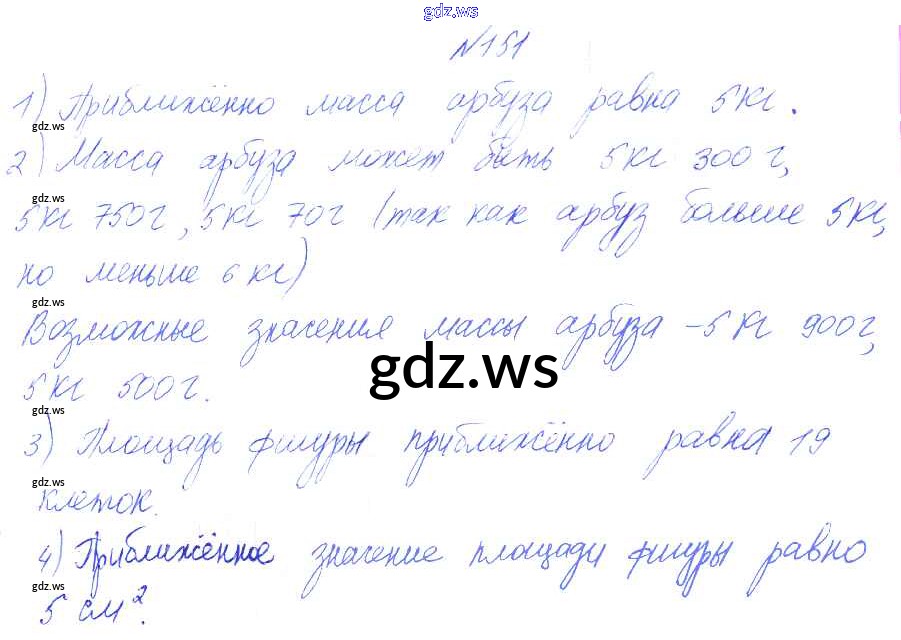 gdz.ws
№151
1) Приближённо масса арбуза равна 5 кг.
gdz.ws
2) Масса арбуза может быть 5 кг 300 г,
gdz.ws
5 кг 750 г, 5 кг 70 г (так как арбуз больше 5 кг,
но меньше 6 кг)
gdz.ws
Возможные значения массы арбуза – 5 кг 900 г,
gdz.ws
5 кг 500 г.
gdz.ws
3) Площадь фигуры приближённо равна 19
gdz.ws
клеток.
gdz.ws
4) Приближённое значение площади фигуры равно
gdz.ws
5 см².